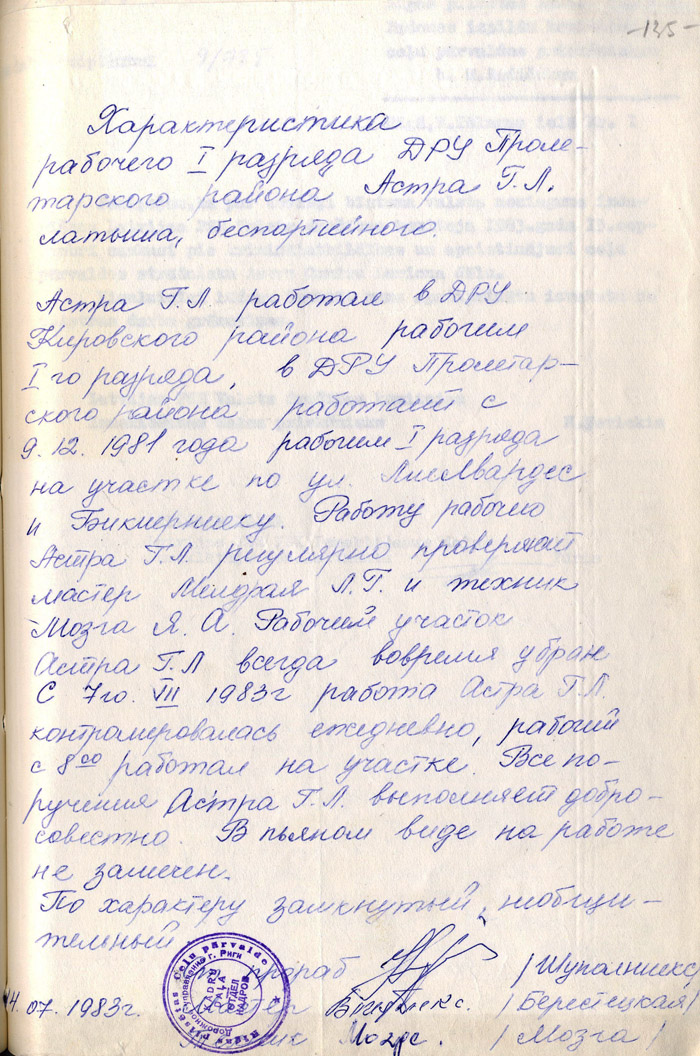 -135-
Характеристика
рабочего I разряда ДРУ Проле-
тарского района Астра Г.Л.
латыша, беспартийного.
Астра Г.Л работал в ДРУ
Кировского района рабочим
I го разряда, в ДРУ Пролетар-
ского района работает с
9.12.1981 года рабочим I разряда
на участке по ул. Лиелвардес
и Бикиерниеку. Работу рабочего
Астра Г.Л. регулярно проверяют
мастер Мелдрая Л.Г. и техник
Мозга Я.А. Рабочий участок
Астра Г.Л всегда вовремя убран
С 7го. VIII 1983г работа Астра Г.Л.
контролировалась ежедневно, рабочий
с 8⁰⁰ работал на участке. Все по-
ручения Астра Г.Л. выполняет добро-
совестно. В пьяном виде на работе
не замечен.
По характеру замкнутый, необщи-
тельный.
прораб /Шупалниекс/
14.07.1983г. /Берестецкая/
/Мозга/
Rīgas pilsētas Ceļu pārvalde
Дорожное управление г. Риги
KADRU
DAĻA
ОТДЕЛ
КАДРОВ